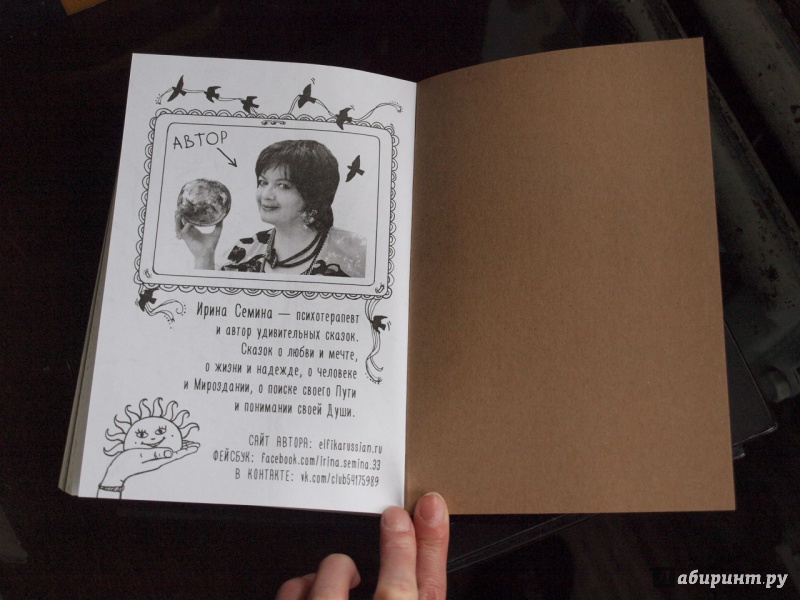 АВТОР
Ирина Семина — психотерапевт
и автор удивительных сказок.
Сказок о любви и мечте,
о жизни и надежде, о человеке
и Мироздании, о поиске своего Пути
и понимании своей Души.
САЙТ АВТОРА: elfikarussian.ru
ФЕЙСБУК: facebook.com/irina.semina.33
В КОНТАКТЕ: vk.com/club54175989
Лабиринт.ру